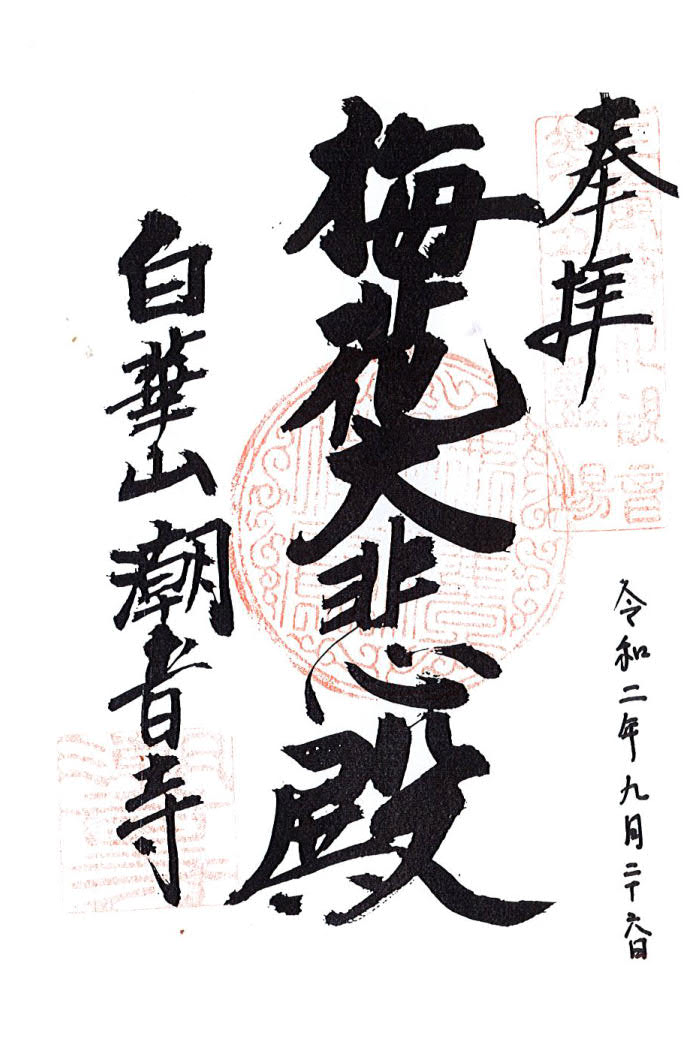 奉拝
令和二年九月二十六日
梅花大悲殿
白華山潮音寺